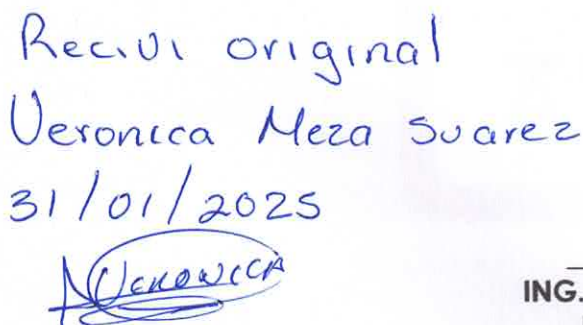 Recivi original
Veronica Meza Suarez
31/01/2025
Veronica
ING.